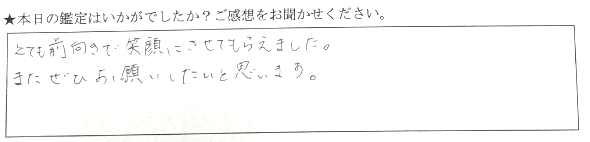 ★本日の鑑定はいかがでしたか？ご感想をお聞かせください。
とても前向きで笑顔にさせてもらえました。
またぜひお願いしたいと思います。